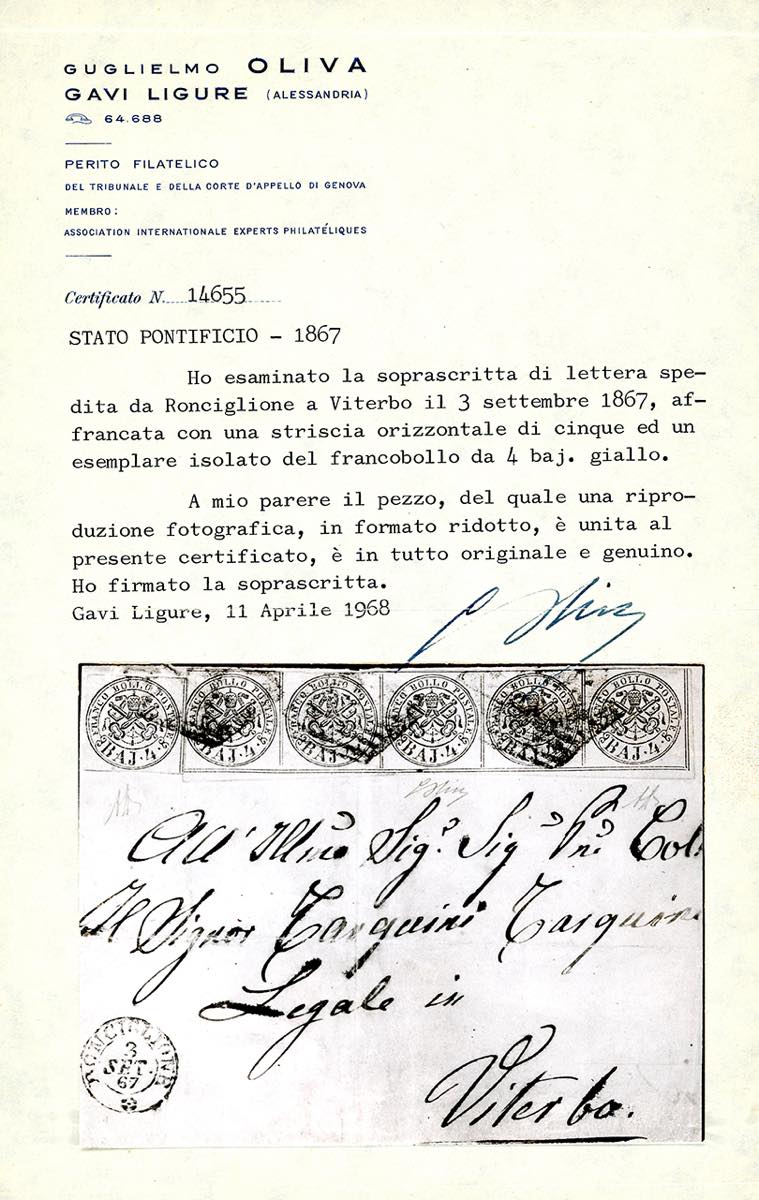 GUGLIELMO OLIVA
GAVI LIGURE (ALESSANDRIA)
64.688
PERITO FILATELICO
DEL TRIBUNALE E DELLA CORTE D'APPELLO DI GENOVA
MEMBRO:
ASSOCIATION INTERNATIONALE EXPERTS PHILATÉLIQUES
Certificato N. 14655
STATO PONTIFICIO - 1867
Ho esaminato la soprascritta di lettera spe-
dita da Ronciglione a Viterbo il 3 settembre 1867, af-
francata con una striscia orizzontale di cinque ed un
esemplare isolato del francobollo da 4 baj. giallo.
A mio parere il pezzo, del quale una ripro-
duzione fotografica, in formato ridotto, è unita al
presente certificato, è in tutto originale e genuino.
Ho firmato la soprascritta.
Gavi Ligure, 11 Aprile 1968
FRANCO BOLLO POSTALE BAJ. 4
FRANCO BOLLO POSTALE BAJ. 4
FRANCO BOLLO POSTALE BAJ. 4
FRANCO BOLLO POSTALE BAJ. 4
FRANCO BOLLO POSTALE BAJ. 4
FRANCO BOLLO POSTALE BAJ. 4
All' Illmo Sigr. Sig Pne Col.
Il Signor Tarquini Tarquin
Legale in
Viterbo.
RONCIGLIONE
3
SET.
67